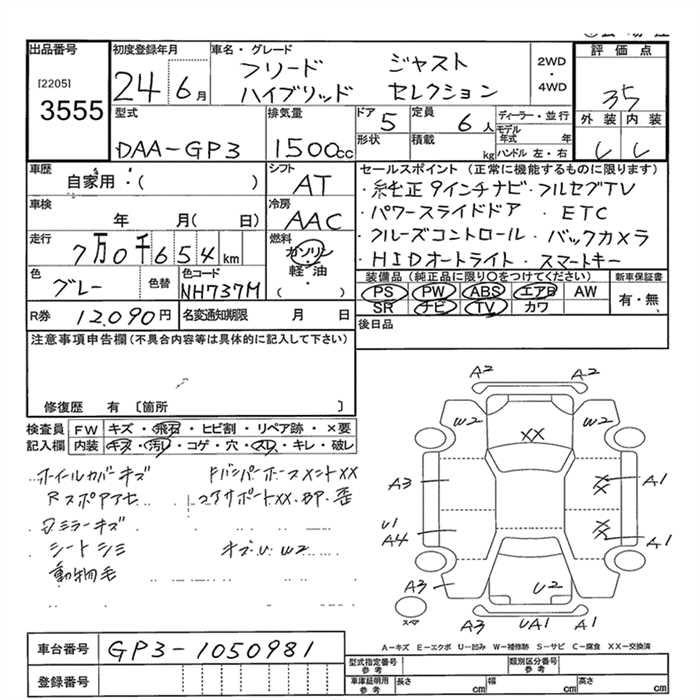 出品番号 初度登録年月 車名・グレード 評価点
[2205]
3555
24 6月
フリード ジャスト
ハイブリッド セレクション
2WD
・
4WD
35
外装 内装
型式 排気量 ドア 定員 ディーラー・並行
DAA-GP3 1500cc 5 6人
モデル年式 年
形状 積載 kg ハンドル 左・右
車歴 シフト セールスポイント (正常に機能するものに限ります)
自家用・( ) AT
・純正9インチナビ・フルセグTV
車検 冷房
年 月( 日) AAC
・パワースライドドア ・ETC
走行 燃料
7万0千654km ガソリン
・クルーズコントロール・バックカメラ
軽・油
・HIDオートライト・スマートキー
色 色替 色コード ( ・ )
グレー NH737M
装備品 (純正品に限り○をつけてください) 新車保証書
PS PW ABS エアB AW 有・無
SR ナビ TV カワ
R券 12,090円 名変通知期限 月 日
後日品
注意事項申告欄(不具合内容等は具体的に記入して下さい)
修復歴 有 [箇所 ]
検査員 FW キズ・飛石・ヒビ割・リペア跡・×要
記入欄 内装 キズ・汚レ・コゲ・穴・スレ・キレ・破レ
ホイールカバーキズ
ドミラーキズ
シートシミ
動物毛
A2 A2
W2 W2
XX
A3 XX A1
U1
A4 XX A1
A3 U2 A3
スペア
A2 UA1 A1
A-キズ E-エクボ U-凹み W-補修跡 S-サビ C-腐食 XX-交換済
車台番号 GP3-1050981
型式指定番号 参考 類別区分番号 参考
登録番号
車庫証明用 参考 長さ cm 幅 cm 高さ cm